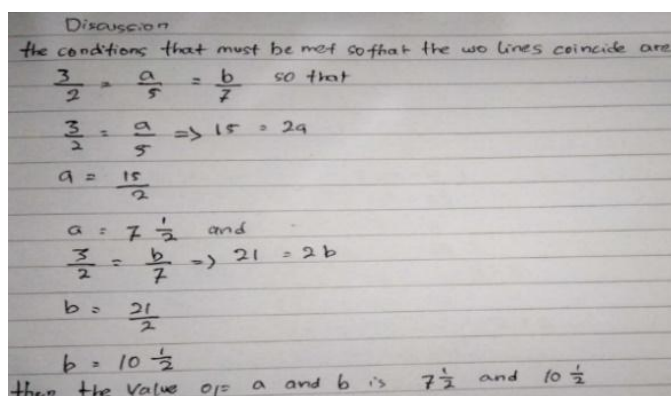 Discussion
the conditions that must be met so that the wo lines coincide are
3/2 = a/5 = b/7 so that
3/2 = a/5 => 15 = 2a
a = 15/2
a = 7 1/2 and
3/2 = b/7 => 21 = 2b
b = 21/2
b = 10 1/2
then the value of a and b is 7 1/2 and 10 1/2